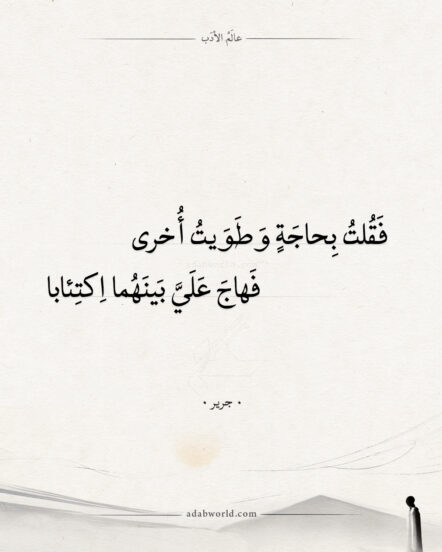 عالَمُ الأدَب
فَقُلتُ بِحاجَةٍ وَطَوَيتُ أُخرى
فَهاجَ عَلَيَّ بَينَهُما اِكتِئابا
• جرير •
adabworld.com